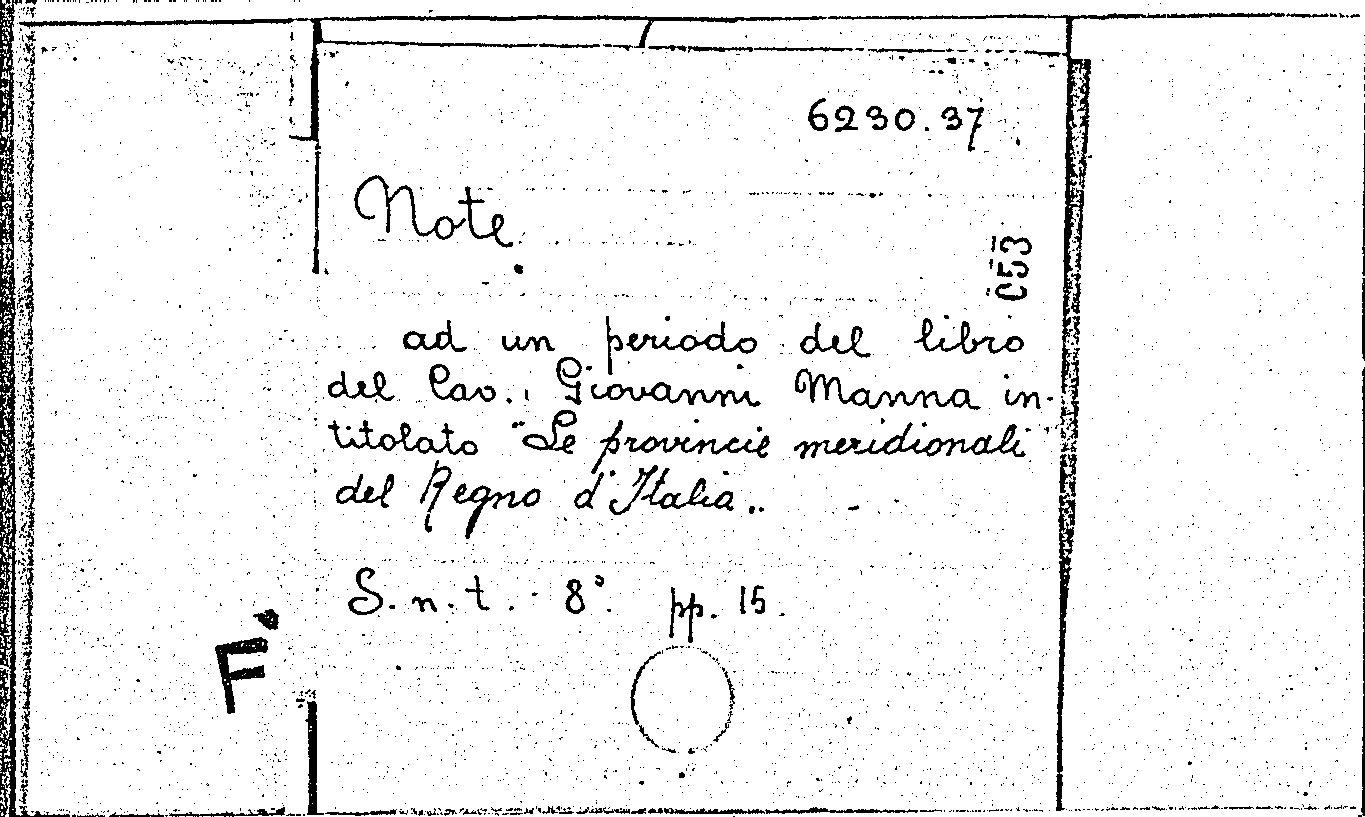 6230.37
Note
053
ad un periodo del libro
del Cav. Giovanni Manna in-
titolato "Le provincie meridionali
del Regno d'Italia„.
S. n. t. 8°. pp. 15.
F